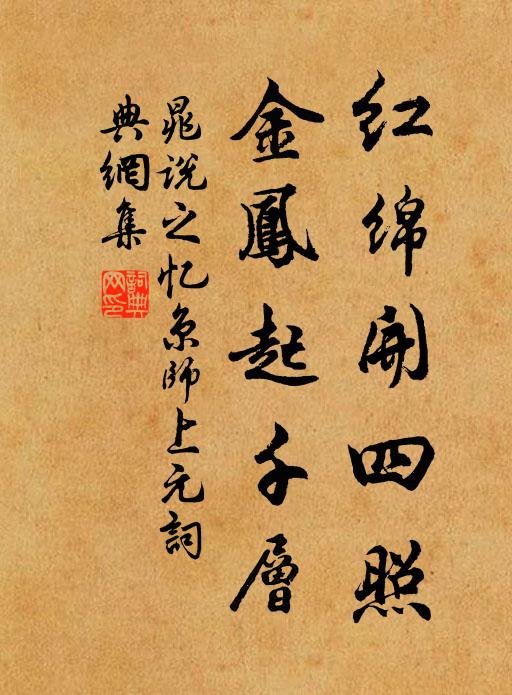 红绵開四照
金鳳起千層
晁說之忆京師上元詞
典網集
詞典网印